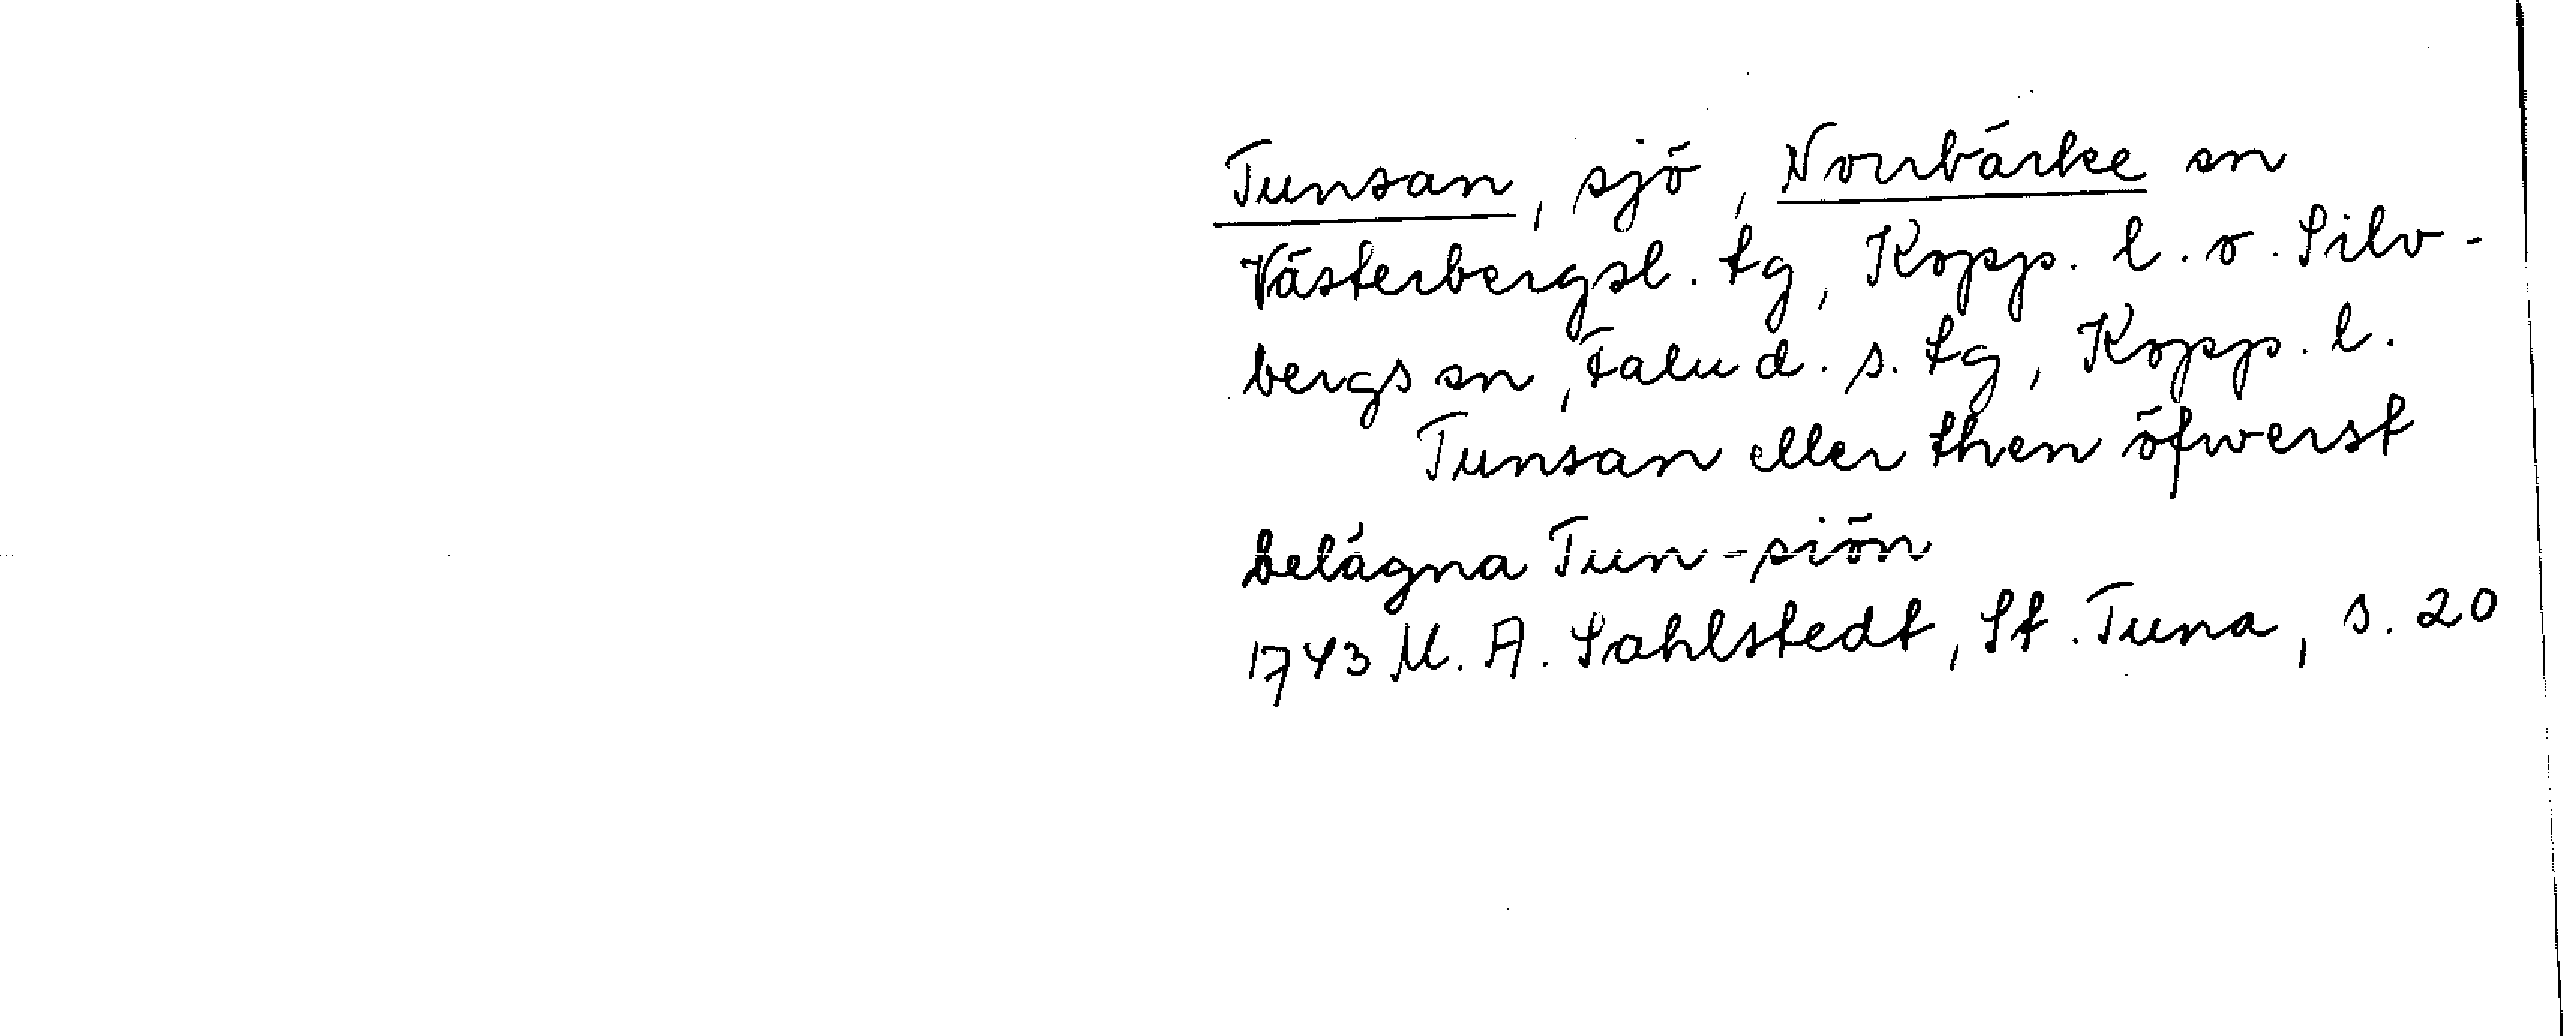 Tunsan, sjö, Norrbärke sn
Västerbergsl. tg, Kopp. l. o. Silv-
bergs sn, Falu d. s. tg, Kopp. l.
Tunsan eller then öfwerst
belägna Tun-siön
1743 M. A. Sahlstedt, St. Tuna, s. 20